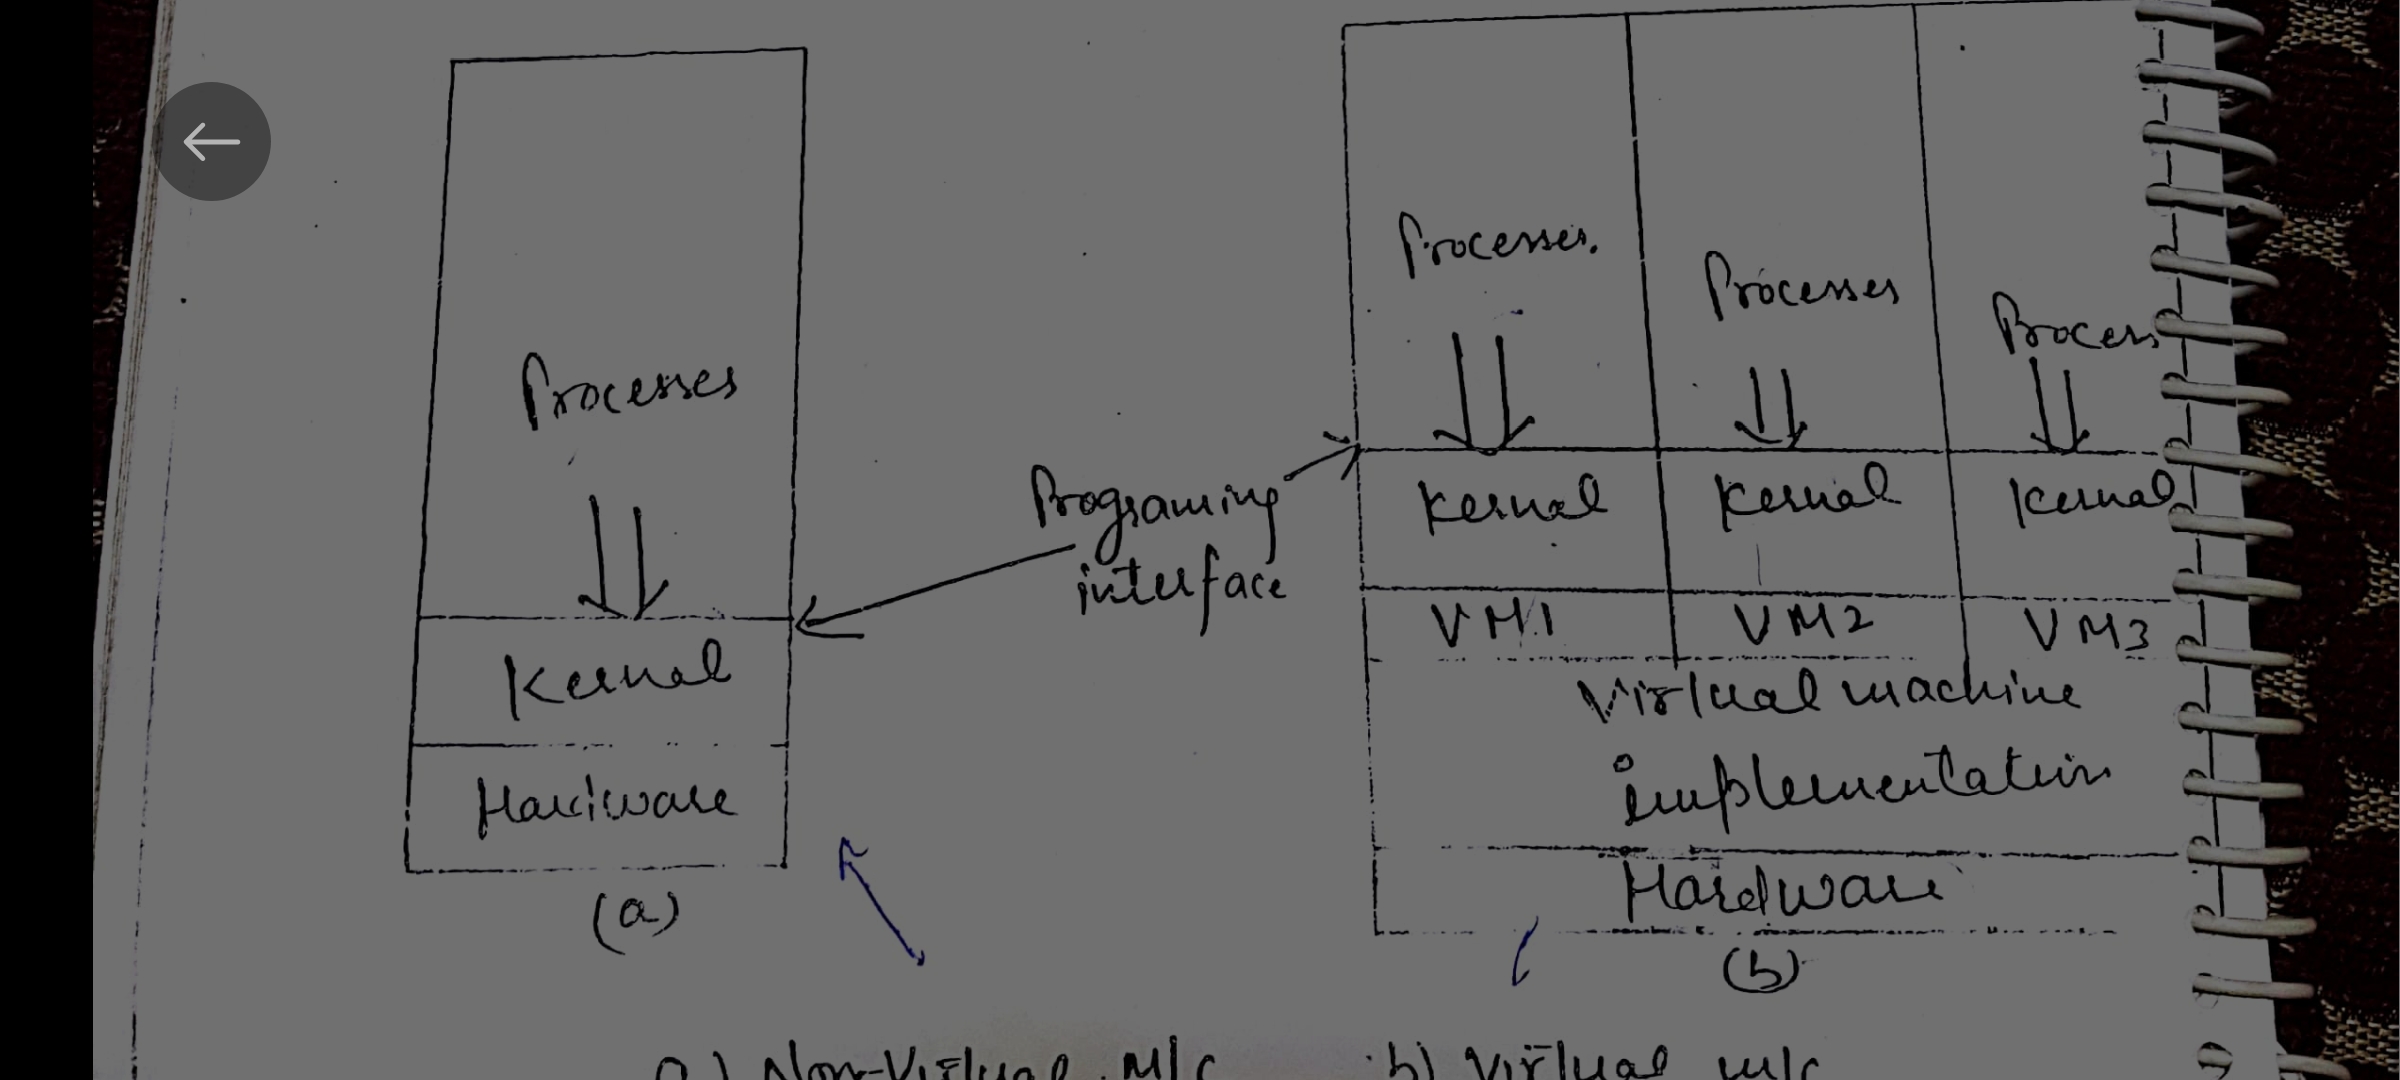 Processes
Kernal
Hardware
(a)
Programing
interface
Processes.
Processes
Process
Kernal
Kernal
Kernal
VM1
VM2
VM3
Virtual machine
implementation
Hardware
(b)
a) Non-Virtual M/c
b) Virtual m/c